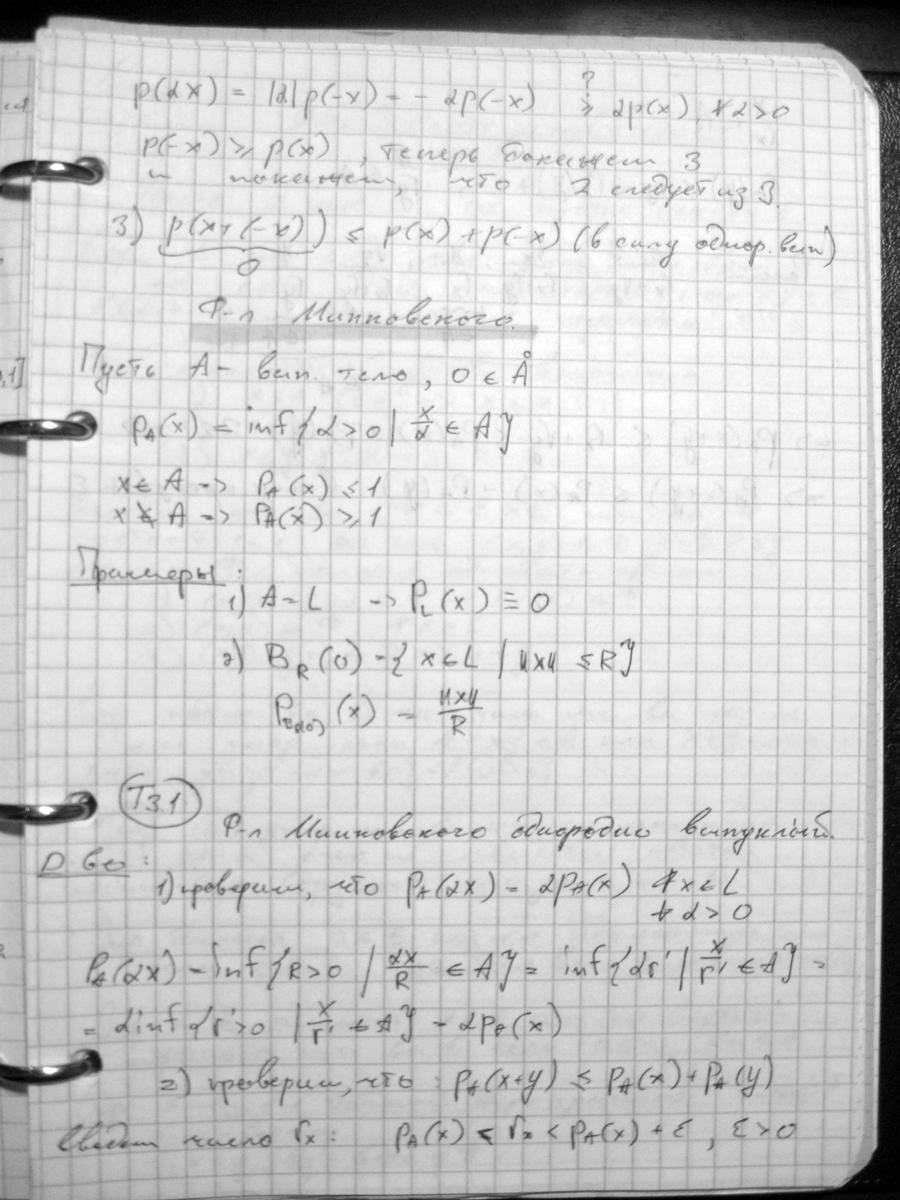 p(αx) = |α|p(-x) = -αp(-x) ≥? αp(x), ∀α>0
p(-x) ≥ p(x), теперь докажем 3
и покажем, что 2 следует из 3.
3) p(x+(-x)) ≤ p(x)+p(-x) (в силу однор. вып)
0
Ф-л Минковского.
Пусть A - вып. тело, 0 ∈ Å
p_A(x) = inf{α>0 | x/α ∈ A}
x ∈ A -> p_A(x) ≤ 1
x ∉ A -> p_A(x) ≥ 1
Примеры:
1) A = L -> P_L(x) ≡ 0
2) B_R(0) = { x ∈ L | ||x|| ≤ R}
P_{B_R(0)}(x) = ||x||/R
Т3.1
Ф-л Минковского однородно выпуклый.
Д-во:
1) проверим, что p_A(αx) = αp_A(x) ∀x ∈ L
∀ α > 0
p_A(αx) = inf{R>0 | αx/R ∈ A} = inf{αr' | x/r' ∈ A} =
= α inf{r'>0 | x/r' ∈ A} = αp_A(x)
2) проверим, что: p_A(x+y) ≤ p_A(x)+p_A(y)
Введем число r_x: p_A(x) < r_x < p_A(x) + ε, ε>0